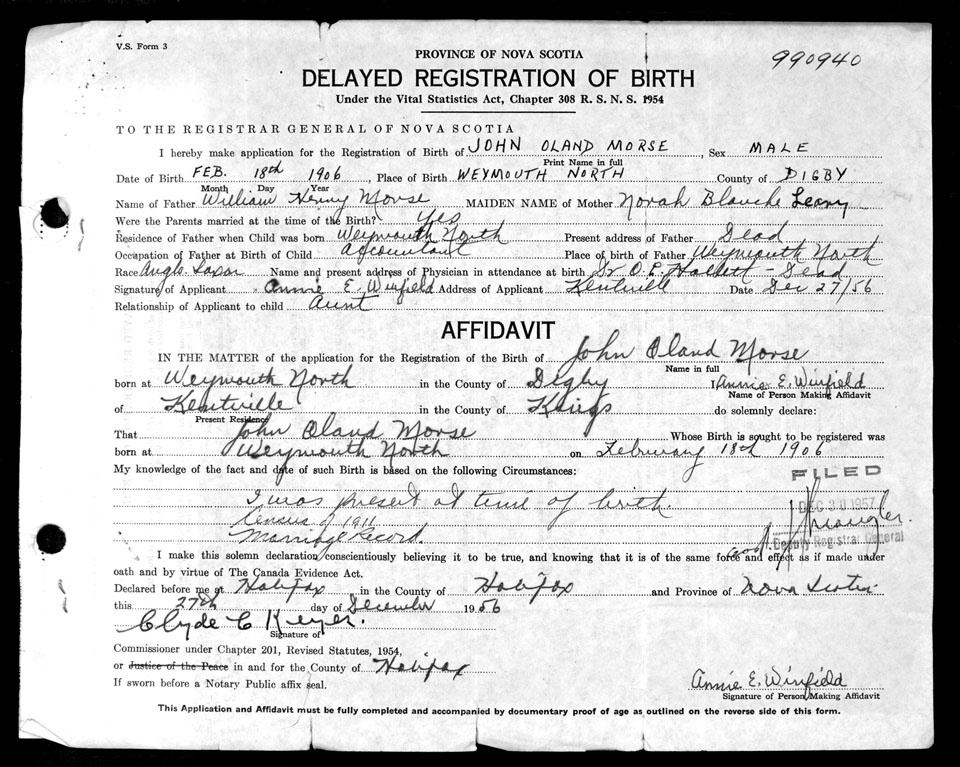 V.S. Form 3
990940
PROVINCE OF NOVA SCOTIA
DELAYED REGISTRATION OF BIRTH
Under the Vital Statistics Act, Chapter 308 R. S. N. S. 1954
TO THE REGISTRAR GENERAL OF NOVA SCOTIA
I hereby make application for the Registration of Birth of JOHN OLAND MORSE, Sex MALE
Print Name in full
Date of Birth FEB. 18th 1906, Place of Birth WEYMOUTH NORTH County of DIGBY
Month Day Year
Name of Father William Henry Morse MAIDEN NAME of Mother Norah Blanche
Were the Parents married at the time of the Birth? Yes
Residence of Father when Child was born Weymouth North Present address of Father Dead
Occupation of Father at Birth of Child Accountant Place of birth of Father Weymouth North
Race Anglo Saxon Name and present address of Physician in attendance at birth Dr O. E. Hallett - Dead
Signature of Applicant Annie E Winfield Address of Applicant Kentville Date Dec 27/56
Relationship of Applicant to child Aunt
AFFIDAVIT
IN THE MATTER of the application for the Registration of the Birth of John Oland Morse
Name in full
born at Weymouth North in the County of Digby I Annie E. Winfield
Name of Person Making Affidavit
of Kentville in the County of Kings do solemnly declare:
Present Residence
That John Oland Morse Whose Birth is sought to be registered was
born at Weymouth North on February 18th 1906
My knowledge of the fact and date of such Birth is based on the following Circumstances:
FILED
I was present at time of birth.
DEC 30 1957
Census of 1911
Marriage Record.
Deputy Registrar General
I make this solemn declaration conscientiously believing it to be true, and knowing that it is of the same force and effect as if made under
oath and by virtue of The Canada Evidence Act.
Declared before me at Halifax in the County of Halifax and Province of Nova Scotia
this 27th day of December 1956
Clyde C Keyer.
Signature of
Commissioner under Chapter 201, Revised Statutes, 1954,
or Justice of the Peace in and for the County of Halifax
If sworn before a Notary Public affix seal.
Annie E. Winfield
Signature of Person Making Affidavit
This Application and Affidavit must be fully completed and accompanied by documentary proof of age as outlined on the reverse side of this form.